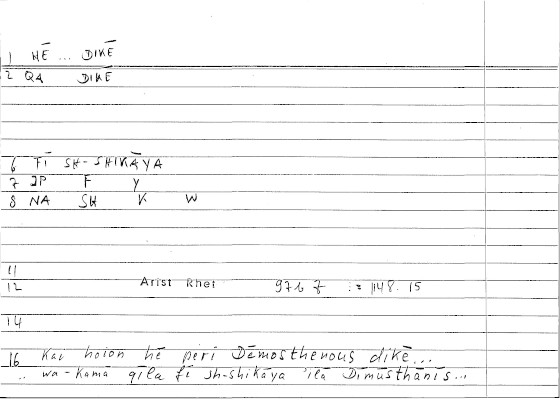 1 HĒ ... DIKĒ
2 QA DIKĒ
6 FĪ SH-SHIKĀYA
7 JP F Y
8 NA SH K W
11
12 Arist Rhet 976 7 := 148.15
14
16 Kai hoion hē peri Dēmosthenous dikē...
.. wa-kamā qīla fī sh-shikāya 'ilā Dīmūsthānīs...